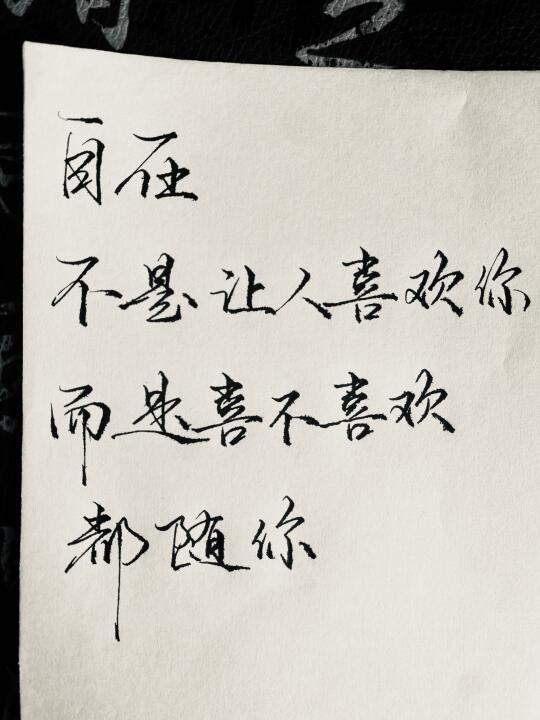 自在
不是让人喜欢你
而是喜不喜欢
都随你